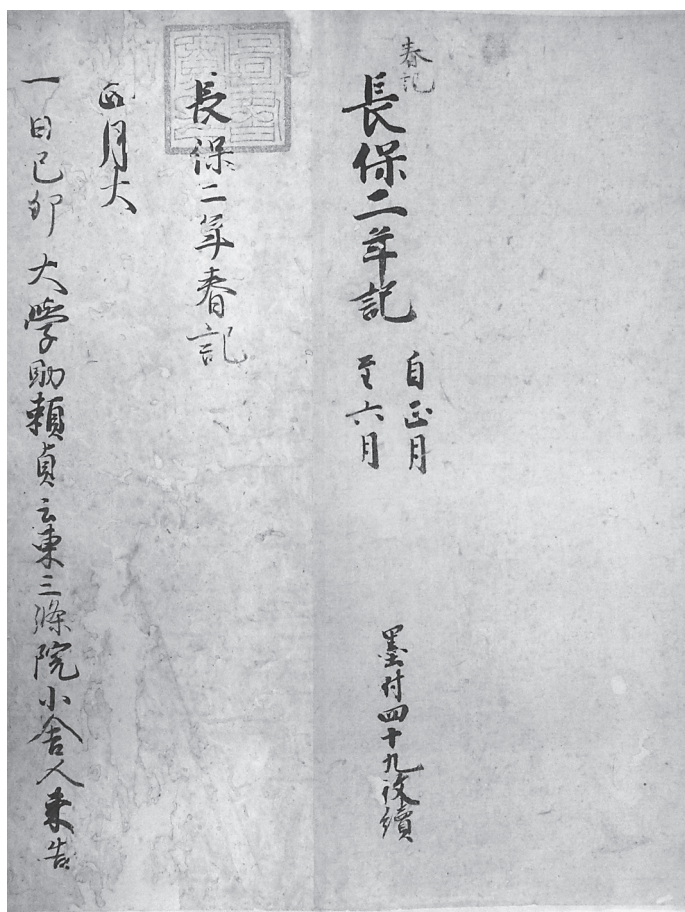 春記
長保二年記
自正月
至六月
墨付四十九枚續
長保二年春記
正月大
一日己卯大學助頼貞云東三條院小舎人来告